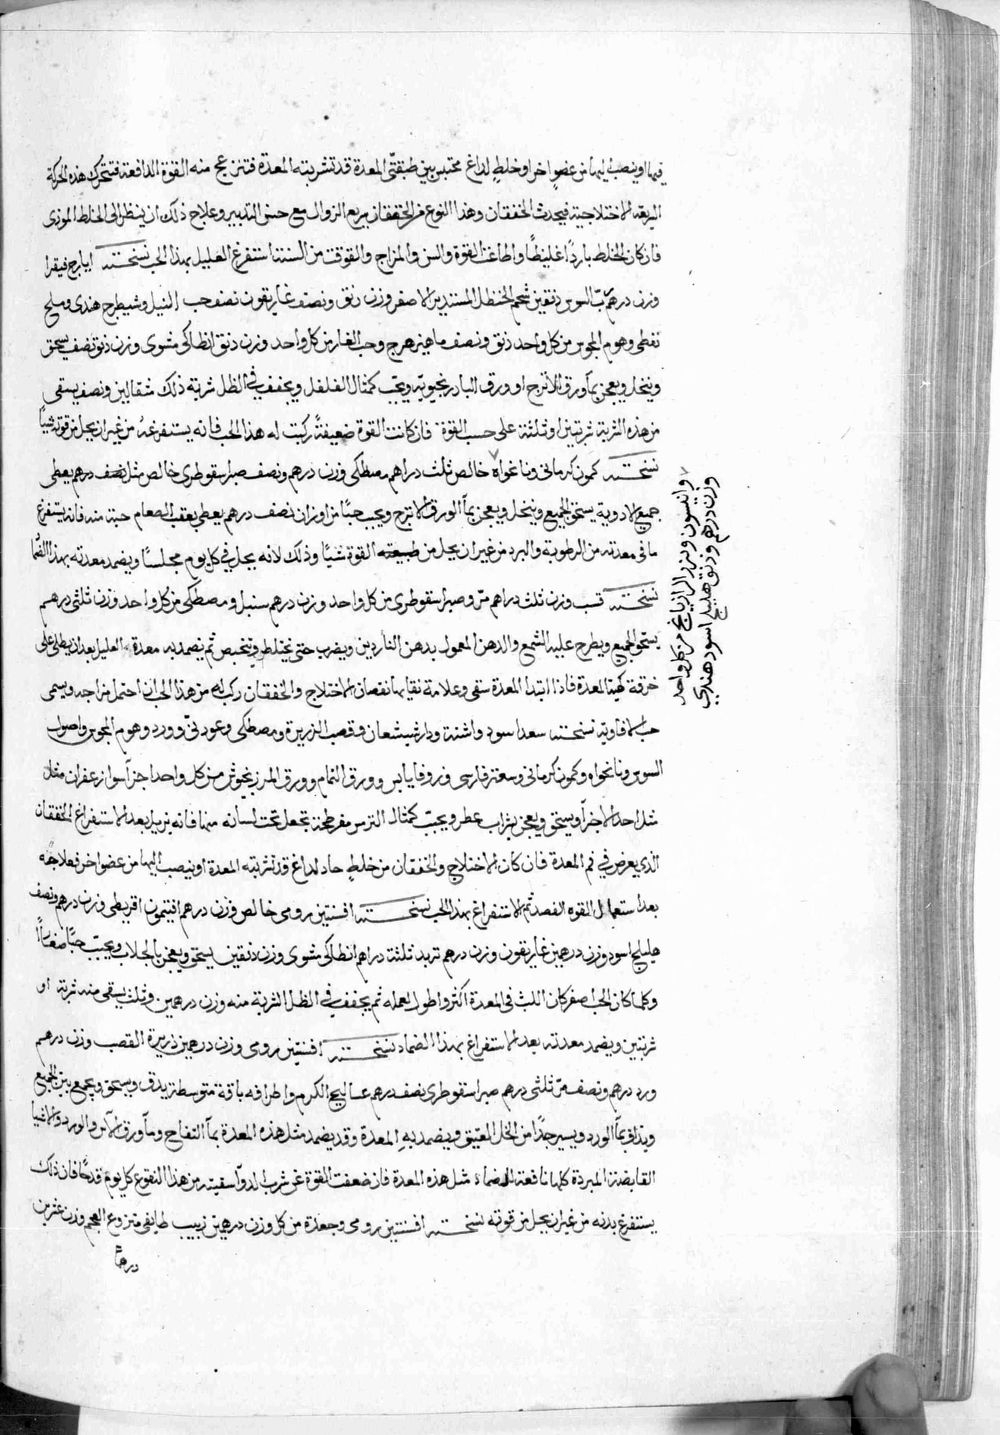 فيها او ينصب اليها من عضو اخر او خلط لداغ محتبس بين طبقتي المعدة قد تشربته المعدة فتنزعج منه القوة الدافعة فتتحرك هذه الحركة
السريعة الاختلاجية فيحدث الخفقان وهذا النوع من الخفقان سريع الزوال مع حسن التدبير وعلاج ذلك ان ينظر الى الخلط الموذى
فان كان الخلط باردًا غليظًا واطاعت القوة والسن والمزاج والقوة من السنة استفرغ العليل بهذا الحب نسخته ايارج فيقرا
وزن درهم ربّ السوس دنقين شحم الحنظل المستدير الاصفر وزن دنق ونصف غاريقون نصف حب النيل وشيطرج هندى وملح
نفطى وهوم المجوس من كل واحد دنق ونصف ماهيزهرج وحب الغار من كل واحد وزن دنق انطاكى مشوى وزن دنق نصف يسحق
وينخل ويعجن بمآ ورق الاترج او ورق البادرنجبويه ويحبّب كمثال الفلفل ويجفف في الظل شربة ذلك مثقالين ونصف يسقى
من هذه الشربة شربتين او ثلثة على حسب القوة فان كانت القوة ضعيفةً ركبت له هذا الحب فانه يستفرغه من غير ان يحل من قوته شيًا
نسخته كمون كرمانى ونانخواه خالص ثلث دراهم مصطكى وزن درهم ونصف صبر اسقوطرى خالص مثل نصف درهم يعطى
جميع الادوية يستحق الجميع وينخل ويعجن بمآ الورق الاترج ويحبّب حبًا من اوزان نصف درهم يعطى بعقب الطعام حبة منه فانه يستفرغ
ما فى معدته من الرطوبة والبرد من غير ان يحل من طبيعته القوة شيًا وذلك لانه يحل في كل يوم مجلسًا ويضمد معدته بهذا الضماد
نسخته قسب وزن ثلث دراهم مرّ وصبر اسقوطرى من كل واحد وزن درهم سنبل ومصطكى من كل واحد وزن ثلثى درهم
يستحق الجميع ويطرح عليه الشمع والدهن المعمول بدهن الناردين ويضرب حتى يختلط ويتخبص ثم يضمد به معدة العليل بعد ان يطلى على
خرقة كهيئة المعدة فاذا ابتدا المعدة سقى وعلامة نقايها نقصان الاختلاج والخفقان ركب له من هذا الحب ان احتمل مزاجه ويسمى
حب الافاويه نسخته سعد اسود واشنة ودارشيشعان وقصب الذريرة ومصطكى وعود نيّ وورد وهوم المجوس واصول
السوس ونانخواه وكمون كرمانى وسعتر فارسى وزوفا يابس وورق النمام وورق المرزنجوش من كل واحد اجزآ سوا زعفران مثل
مثل احد الاجزآ ويسحق ويعجن بشراب عطر ويحبّب كمثال الترمس مفرطحة تجعل تحت لسانه منها فانه يزيل بعد الاستفراغ الخفقان
الذى يعرض في فم المعدة فان كان الاختلاج والخفقان من خلط حاد لداغ قد تشربته المعدة او ينصب اليها من عضو اخر فعلاجه
بعد استعمال القوه الفصد ثم الاستفراغ بهذا الحب نسخته افسنتين رومى خالص وزن درهم افتيمون اقريطى وزن درهم ونصف
هليلج اسود وزن درهمين غاريقون وزن درهم تربد ثلثة دراهم انطاكى مشوى وزن دنقين يستحق ويعجن بالجلاب ويحبّب حبًّا صغارًا
وكلما كان الحب اصغر كان اللبث فى المعدة اكثر واطول لعمله ثم يجفف في الظل الشربة منه وزن درهمين وثلث يسقى منه شربة او
شربتين ويضمد معدته بعد الاستفراغ بهذا الضماد نسخته افسنتين رومى وزن درهمين ذريرة القصب وزن درهم
ورد درهم ونصف مرّ ثلثى درهم صبر اسقوطرى نصف درهم عساليج الكرم واطرافه باقة متوسطة يدق ويسحق ويجمع بين الجميع
ويذاف بمآ الورد ويسير جدًا من الخل العتيق ويضمد بهِ المعدة وقد يضمد مثل هذه المعدة بمآ التفاح ومآ ورق الآس والورد والاشيا
القابضة المبردة كلها نافعة للضماد مثل هذه المعدة فان ضعفت القوة عن شرب الدوآ سقيته من هذا النقوع كل يوم قدحًا فان ذلك
يستفرغ بدنه من غير ان يحل من قوته نسخته افسنتين رومى وجعدة من كل وزن درهمين زبيب طايفى منزوع العجم وزن عشرين
درهمًا
وانيسون وبزر الرازيانج من كل واحد
وزن درهم ودنق هليلج اسود هندي